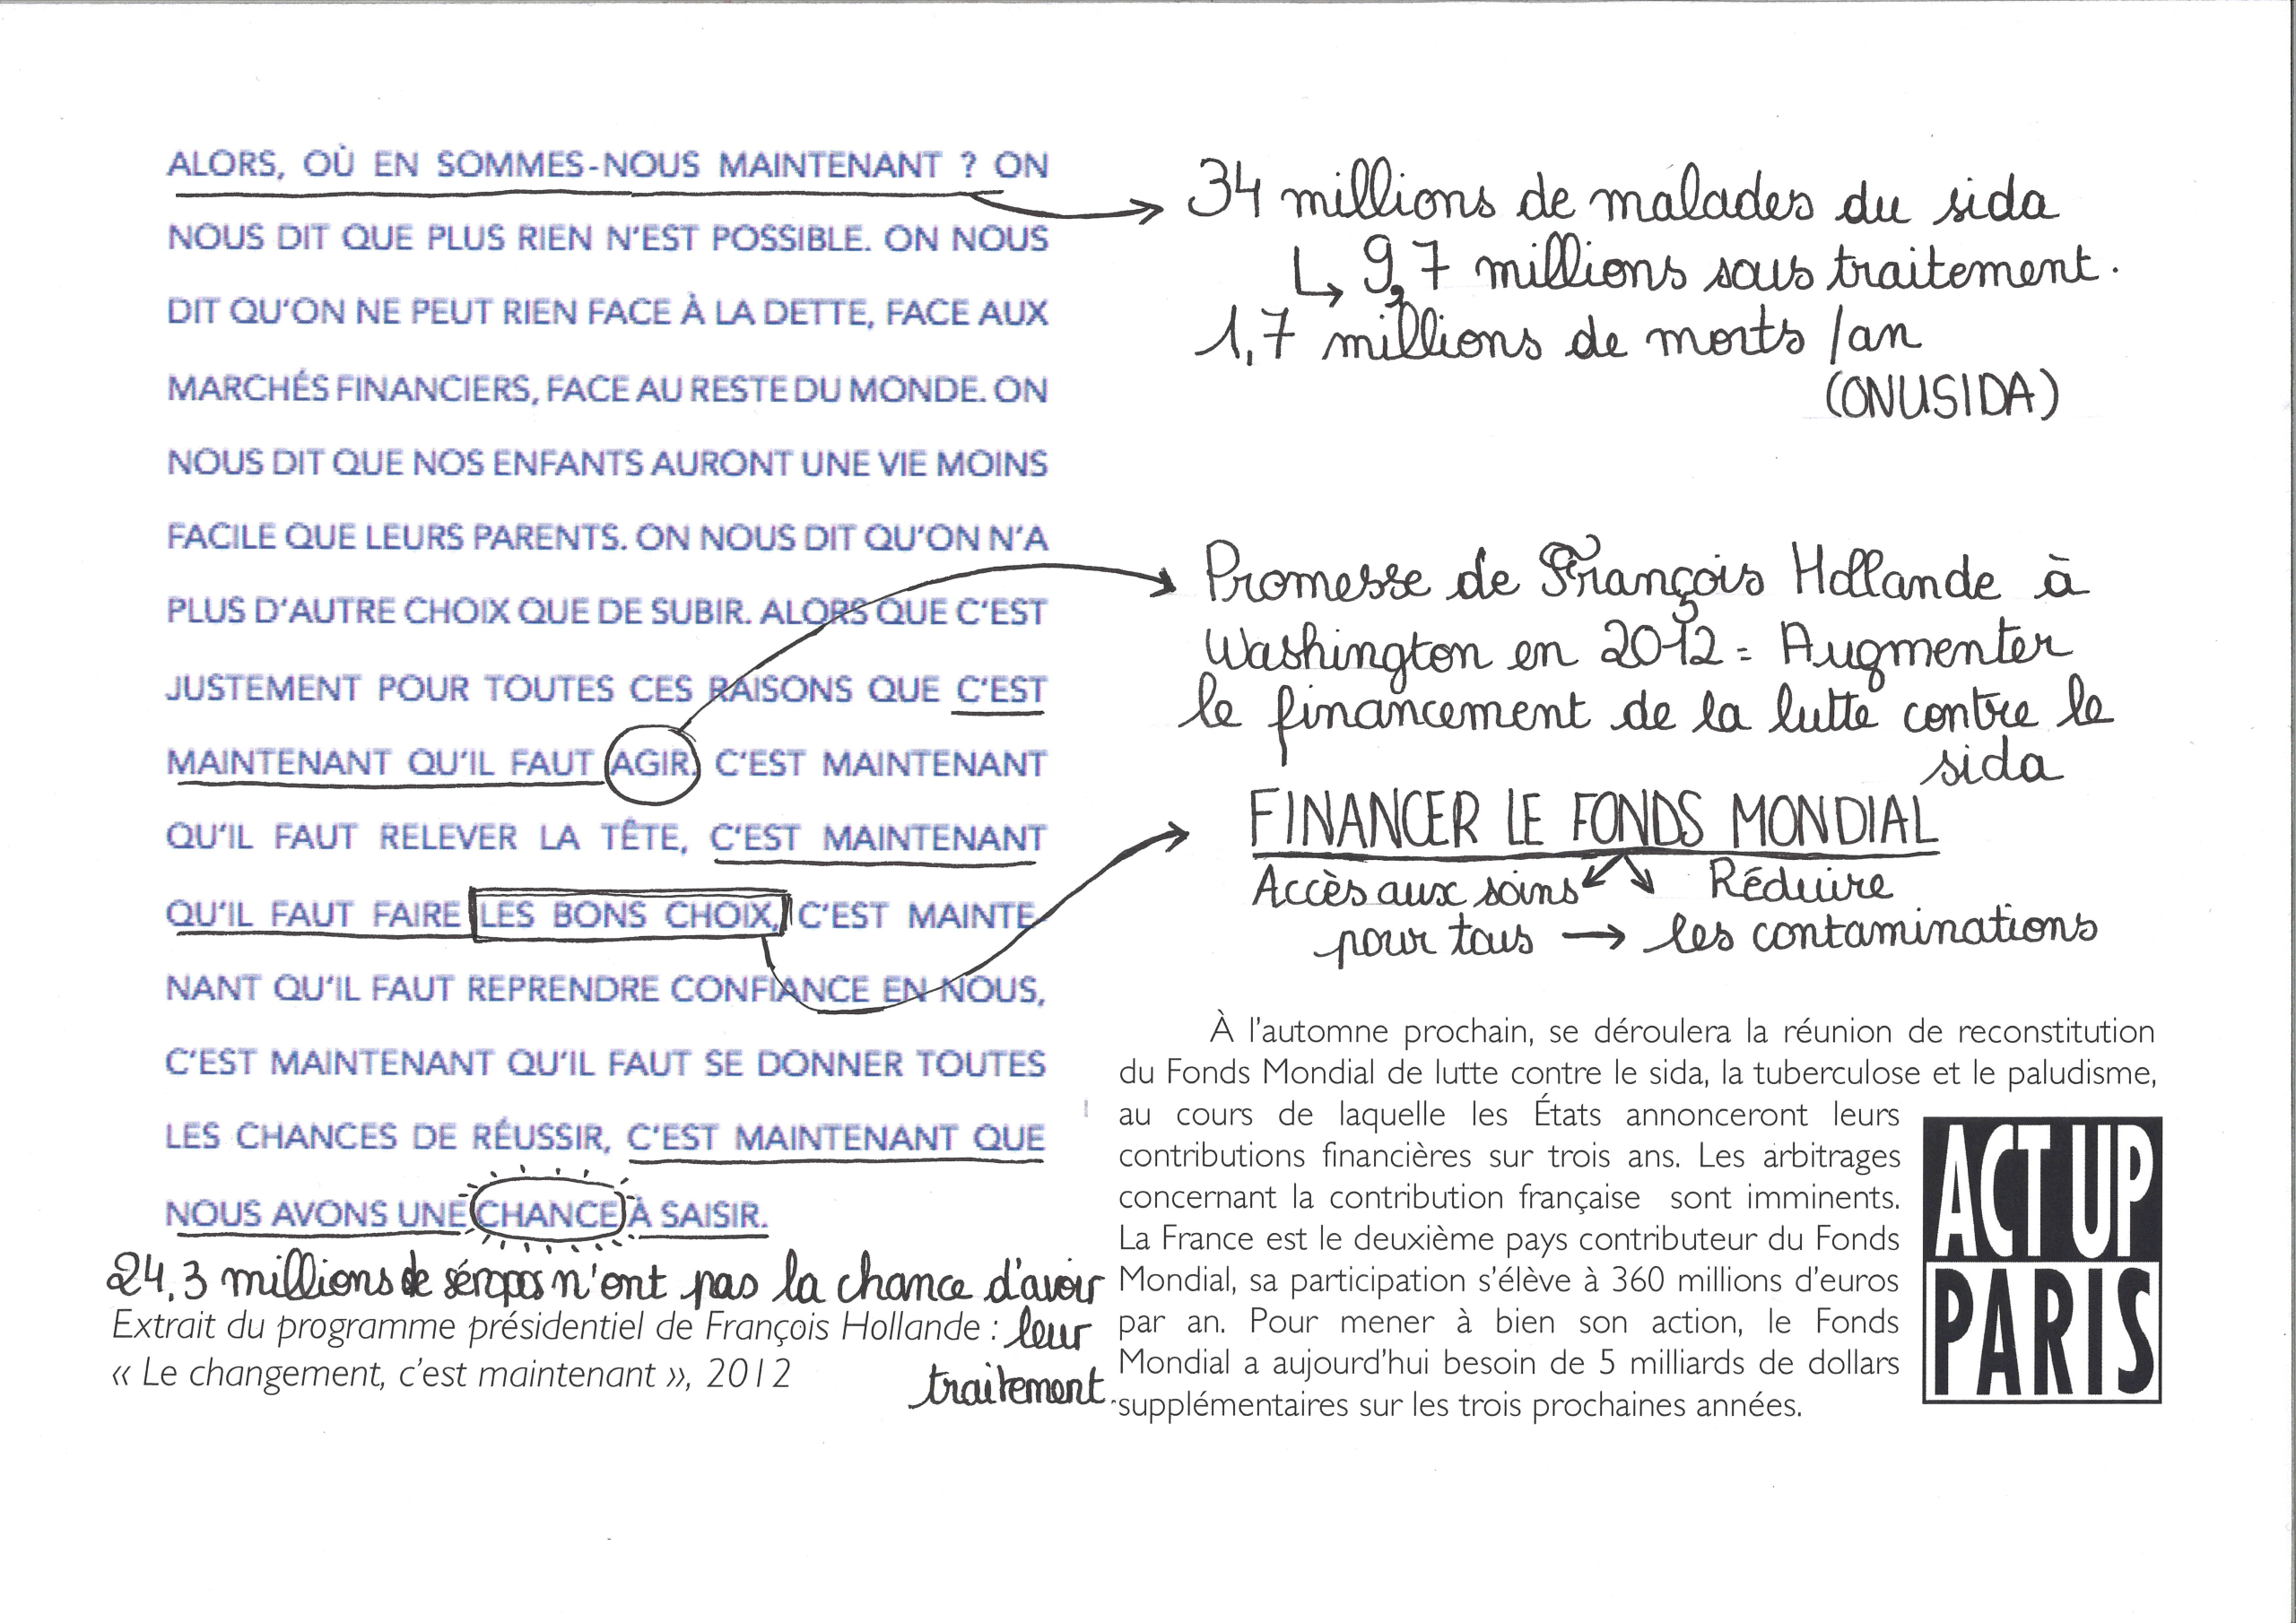 ALORS, OÙ EN SOMMES-NOUS MAINTENANT ? ON
NOUS DIT QUE PLUS RIEN N'EST POSSIBLE. ON NOUS
DIT QU'ON NE PEUT RIEN FACE À LA DETTE, FACE AUX
MARCHÉS FINANCIERS, FACE AU RESTE DU MONDE. ON
NOUS DIT QUE NOS ENFANTS AURONT UNE VIE MOINS
FACILE QUE LEURS PARENTS. ON NOUS DIT QU'ON N'A
PLUS D'AUTRE CHOIX QUE DE SUBIR. ALORS QUE C'EST
JUSTEMENT POUR TOUTES CES RAISONS QUE C'EST
MAINTENANT QU'IL FAUT AGIR. C'EST MAINTENANT
QU'IL FAUT RELEVER LA TÊTE, C'EST MAINTENANT
QU'IL FAUT FAIRE LES BONS CHOIX, C'EST MAINTE
NANT QU'IL FAUT REPRENDRE CONFIANCE EN NOUS,
C'EST MAINTENANT QU'IL FAUT SE DONNER TOUTES
LES CHANCES DE RÉUSSIR, C'EST MAINTENANT QUE
NOUS AVONS UNE CHANCE À SAISIR.
24,3 millions de séropos n'ont pas la chance d'avoir
leur
traitement.
Extrait du programme présidentiel de François Hollande :
« Le changement, c'est maintenant », 2012
34 millions de malades du sida
↳ 9,7 millions sous traitement.
1,7 millions de morts /an
(ONUSIDA)
Promesse de François Hollande à
Washington en 2012 = Augmenter
le financement de la lutte contre le
sida
FINANCER LE FONDS MONDIAL
Accès aux soins ↙ ↘ Réduire
pour tous → les contaminations
À l'automne prochain, se déroulera la réunion de reconstitution
du Fonds Mondial de lutte contre le sida, la tuberculose et le paludisme,
au cours de laquelle les États annonceront leurs
contributions financières sur trois ans. Les arbitrages
concernant la contribution française sont imminents.
La France est le deuxième pays contributeur du Fonds
Mondial, sa participation s'élève à 360 millions d'euros
par an. Pour mener à bien son action, le Fonds
Mondial a aujourd'hui besoin de 5 milliards de dollars
supplémentaires sur les trois prochaines années.
ACT UP
PARIS